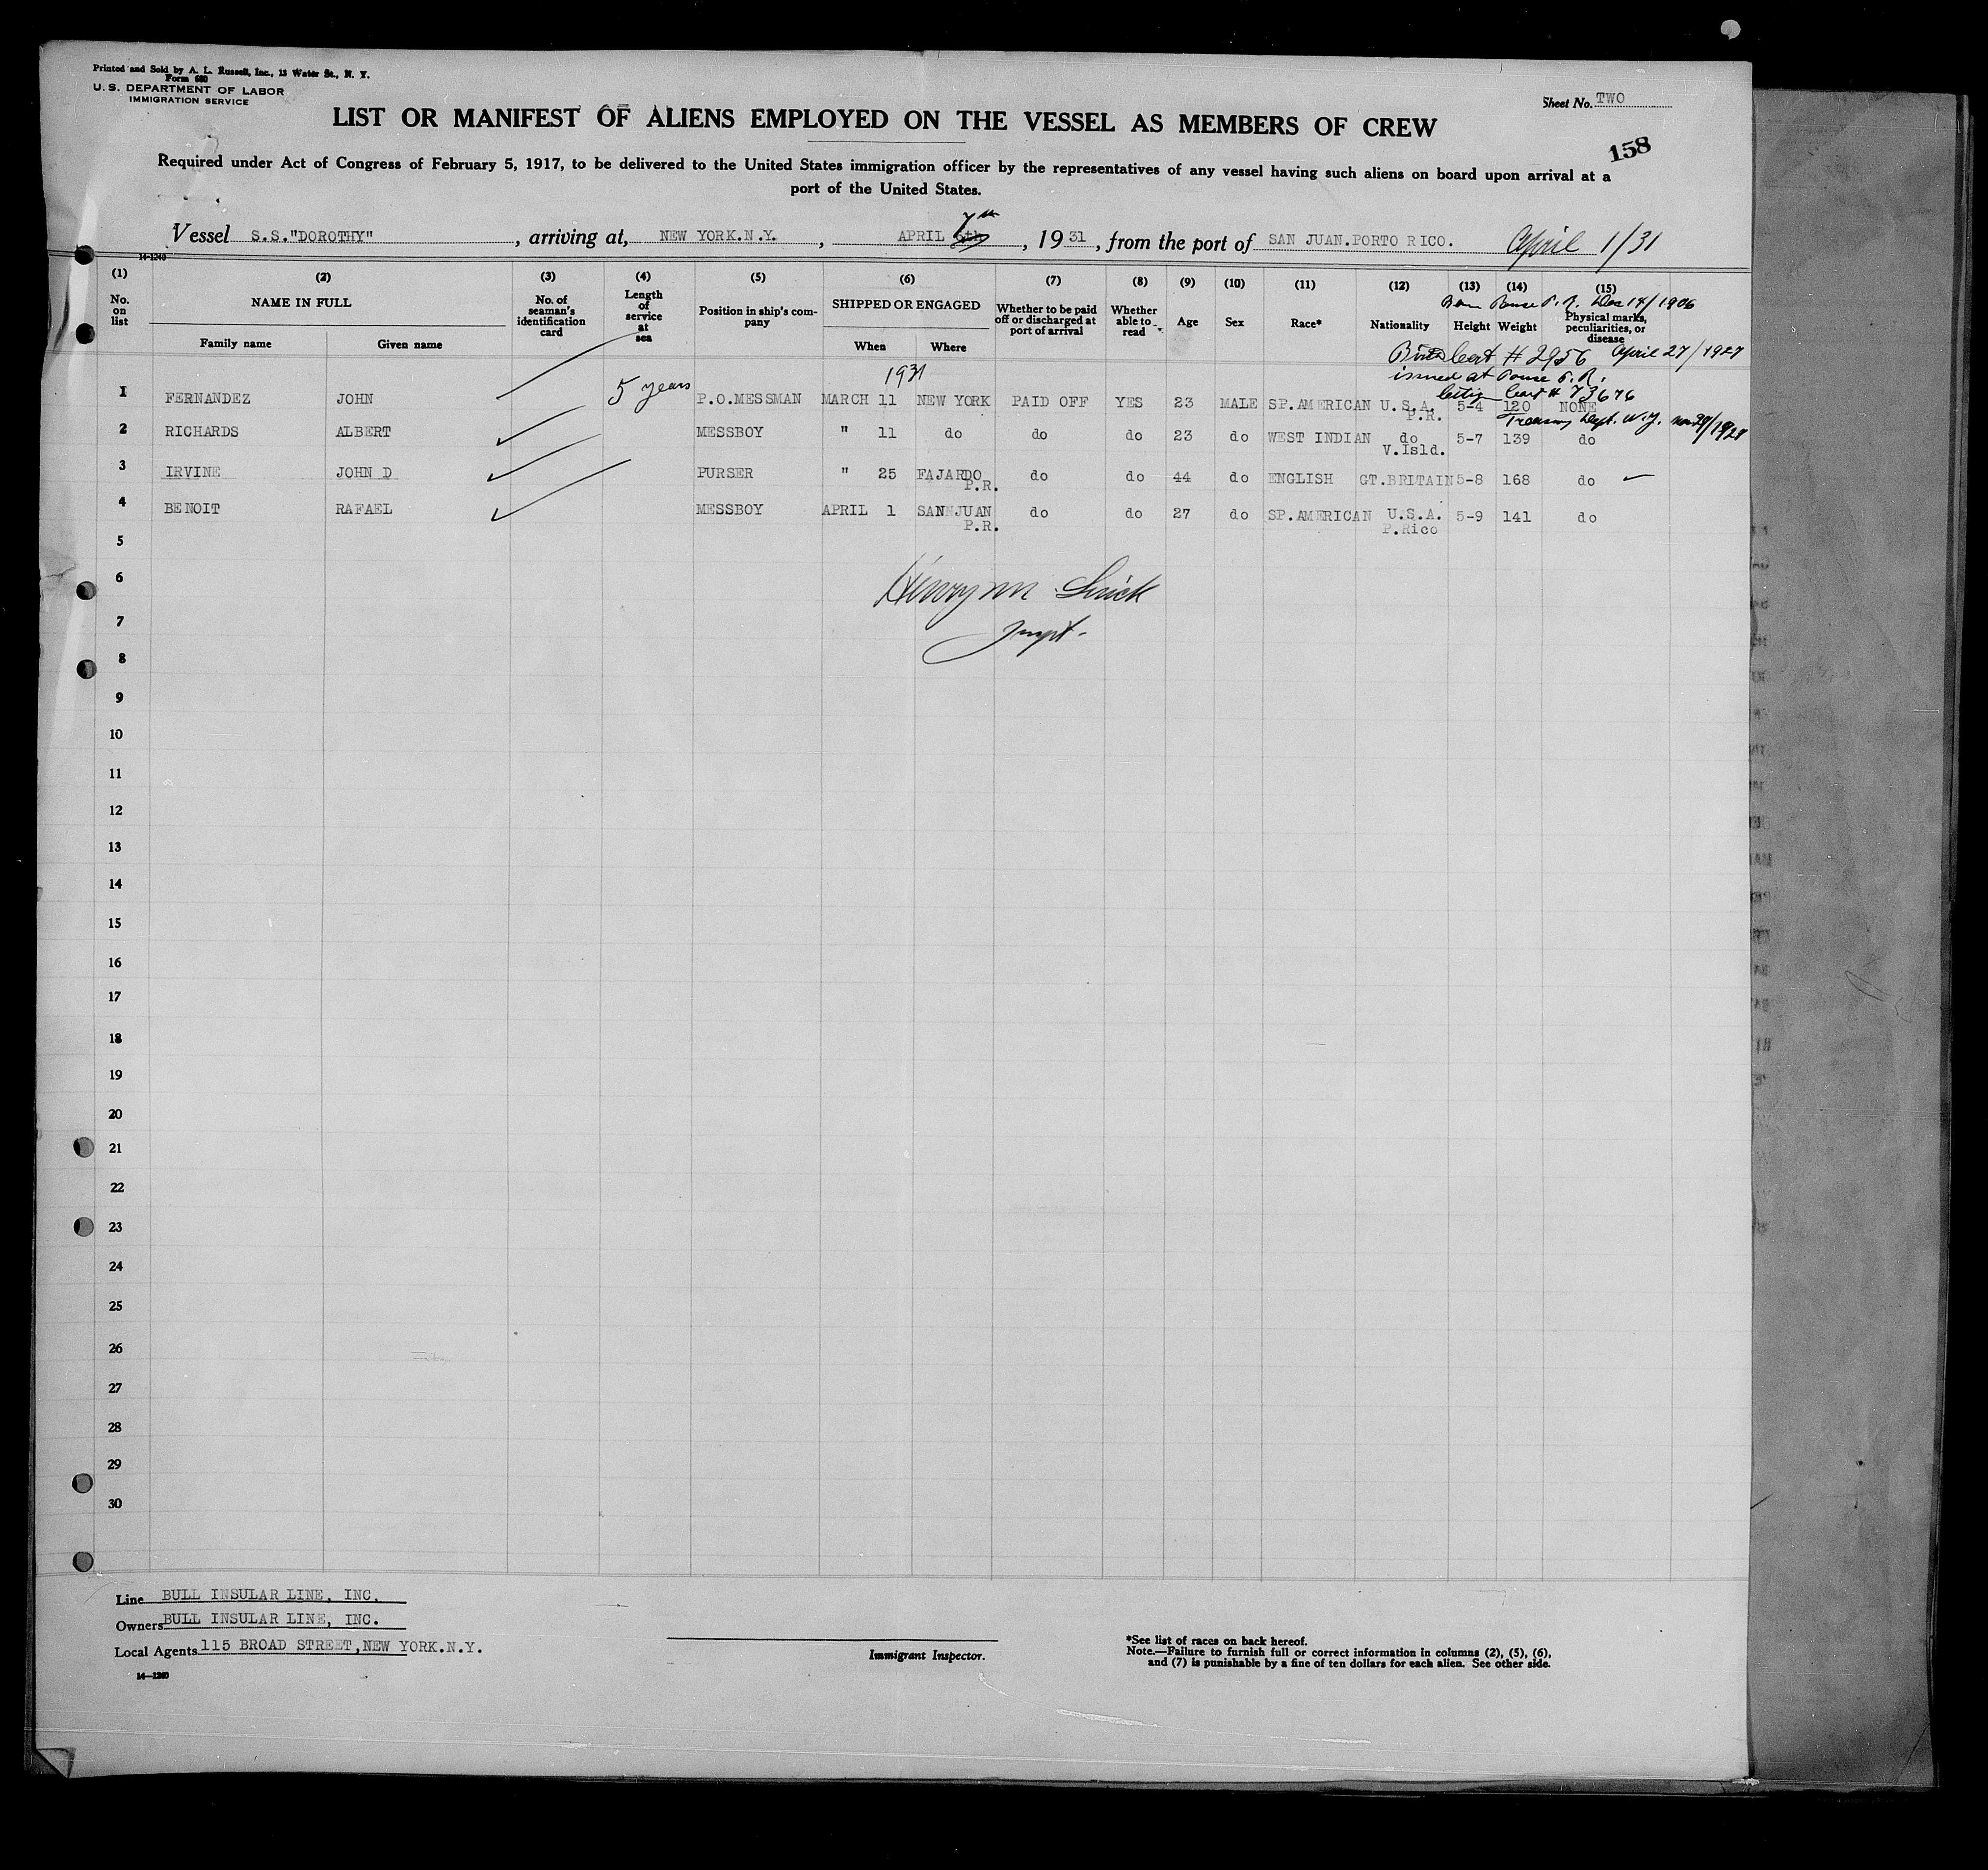 Printed and Sold by A. L. Russell, Inc., 13 Water St., N. Y.
Form 680
U. S. DEPARTMENT OF LABOR
IMMIGRATION SERVICE
Sheet No. TWO
LIST OR MANIFEST OF ALIENS EMPLOYED ON THE VESSEL AS MEMBERS OF CREW
158
Required under Act of Congress of February 5, 1917, to be delivered to the United States immigration officer by the representatives of any vessel having such aliens on board upon arrival at a
port of the United States.
Vessel S.S."DOROTHY", arriving at, NEW YORK.N.Y., APRIL 6th 7th, 1931, from the port of SAN JUAN.PORTO RICO. April 1/31
14-1240
(1) (2) (3) (4) (5) (6) (7) (8) (9) (10) (11) (12) (13) (14) (15)
No. on list NAME IN FULL Family name Given name No. of seaman's identification card Length of service at sea Position in ship's company SHIPPED OR ENGAGED When Where Whether to be paid off or discharged at port of arrival Whether able to read Age Sex Race* Nationality Height Weight Physical marks, peculiarities, or disease
Born Ponse P.R. Dec 14/1906
Birth Cert # 2956 April 27/1927
issued at Ponse P.R.
1931
Citizen Card # 73676
1 FERNANDEZ JOHN 5 years P.O.MESSMAN MARCH 11 NEW YORK PAID OFF YES 23 MALE SP.AMERICAN U.S.A. P.R. 5-4 120 NONE
Treasury Dept. N.Y.
2 RICHARDS ALBERT MESSBOY " 11 do do do 23 do WEST INDIAN do V.Isld. 5-7 139 do
3 IRVINE JOHN D PURSER " 25 FAJARDO P.R. do do 44 do ENGLISH GT.BRITAIN 5-8 168 do
4 BENOIT RAFAEL MESSBOY APRIL 1 SANNJUAN P.R. do do 27 do SP.AMERICAN U.S.A. P.Rico 5-9 141 do
5
6
Henry
7
Inspt.
8
9
10
11
12
13
14
15
16
17
18
19
20
21
22
23
24
25
26
27
28
29
30
Line BULL INSULAR LINE, INC.
Owners BULL INSULAR LINE, INC.
Local Agents 115 BROAD STREET,NEW YORK.N.Y.
14-1240
Immigrant Inspector.
*See list of races on back hereof.
Note.—Failure to furnish full or correct information in columns (2), (5), (6),
and (7) is punishable by a fine of ten dollars for each alien. See other side.